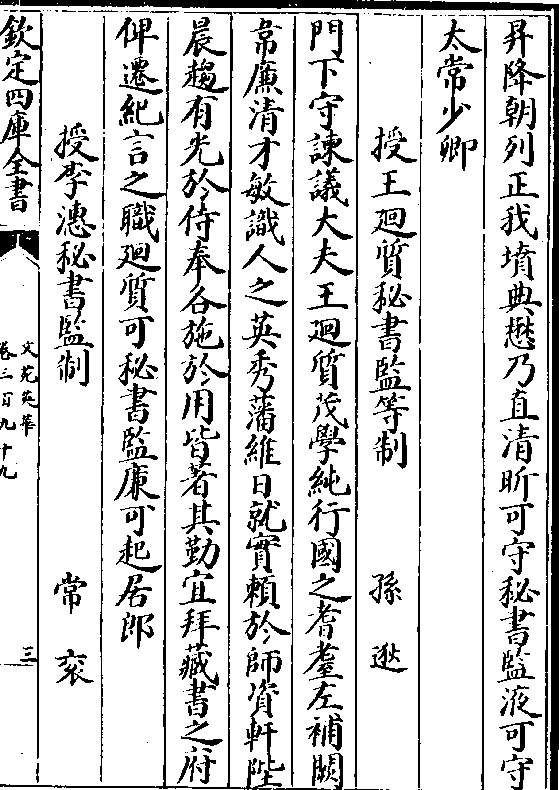 昇降朝列正我墳典懋乃直清昕可守秘書監液可守
太常少卿
授王迴質秘書監等制 孫逖
門下守諫議大夫王迴質茂學純行國之耆耋左補闕
韋廉清才敏識人之英秀藩維日就實賴於師資軒陛
晨趨有光於侍奉各施於用皆著其勤宜拜藏書之府
俾遷紀言之職迴質可秘書監廉可起居郎
授李漶秘書監制 常袞
欽定四庫全書
文苑英華
卷三百九十九
三